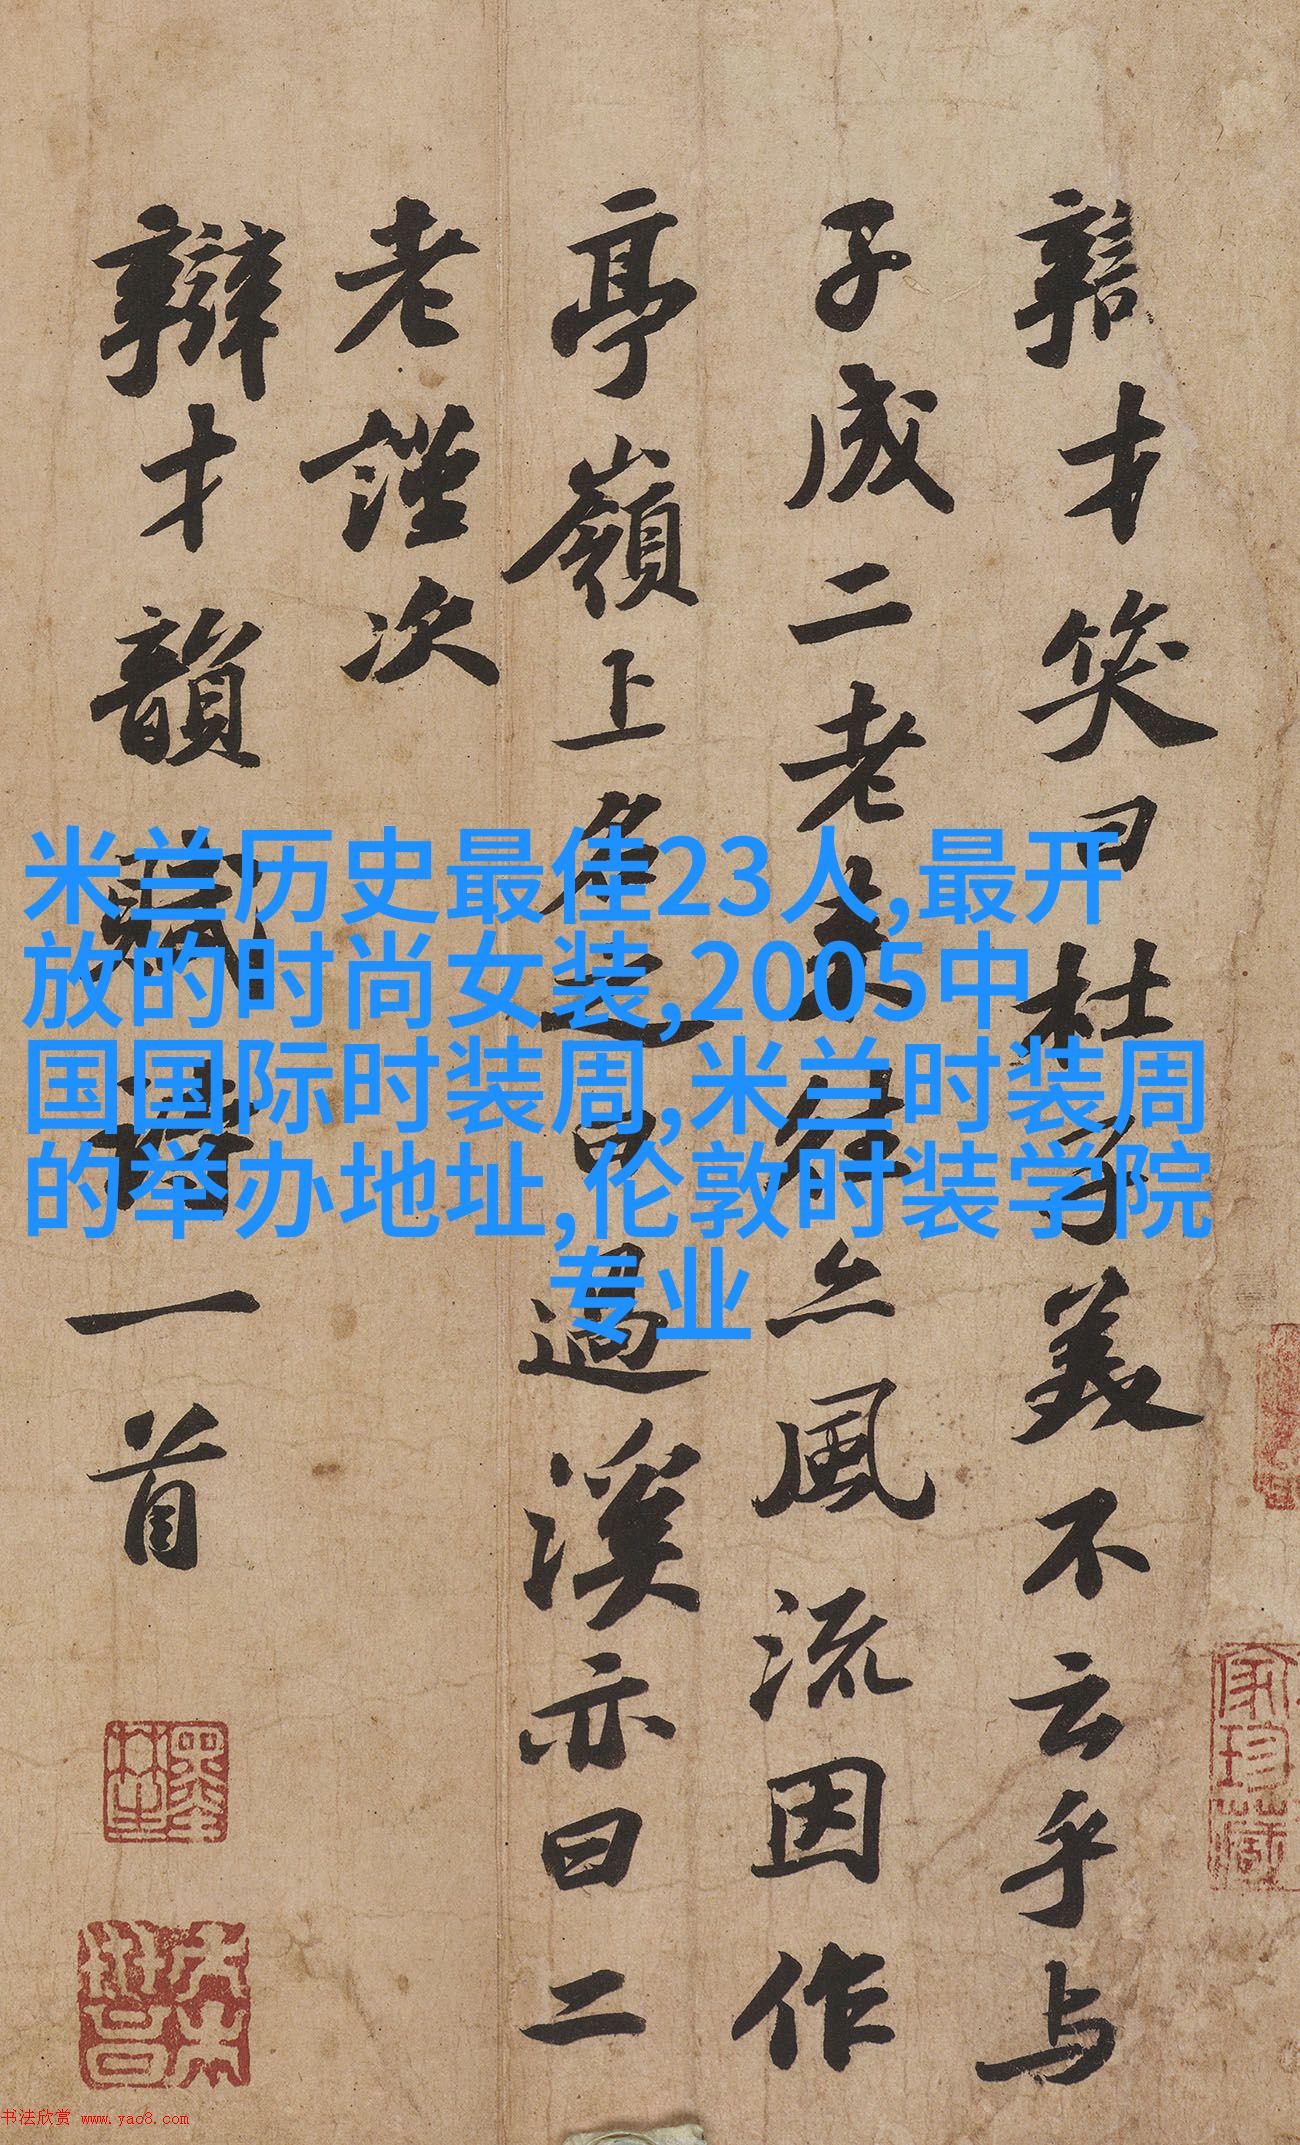 辯才笑曰杜子美不云乎与
子成二老来往亦風流因作
亭嶺上名之曰過溪亦曰二
老謹次
辯才韻賦詩一首
米兰历史最佳23人,最开
放的时尚女装,2005中
国国际时装周,米兰时装周
的举办地址,伦敦时装学院
专业
家珍藏
书法欣赏 www.yac8.com